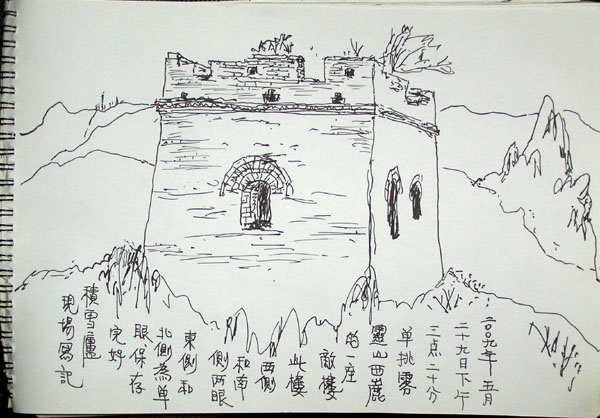 二〇〇九年五月
二十九日下午
三点二十分
单挑雾
靈山西麓
的一座
敵樓
此樓
西側
和南
側两眼
東側和
北側為单
眼.保存
完好
積雪廬
現場寫記